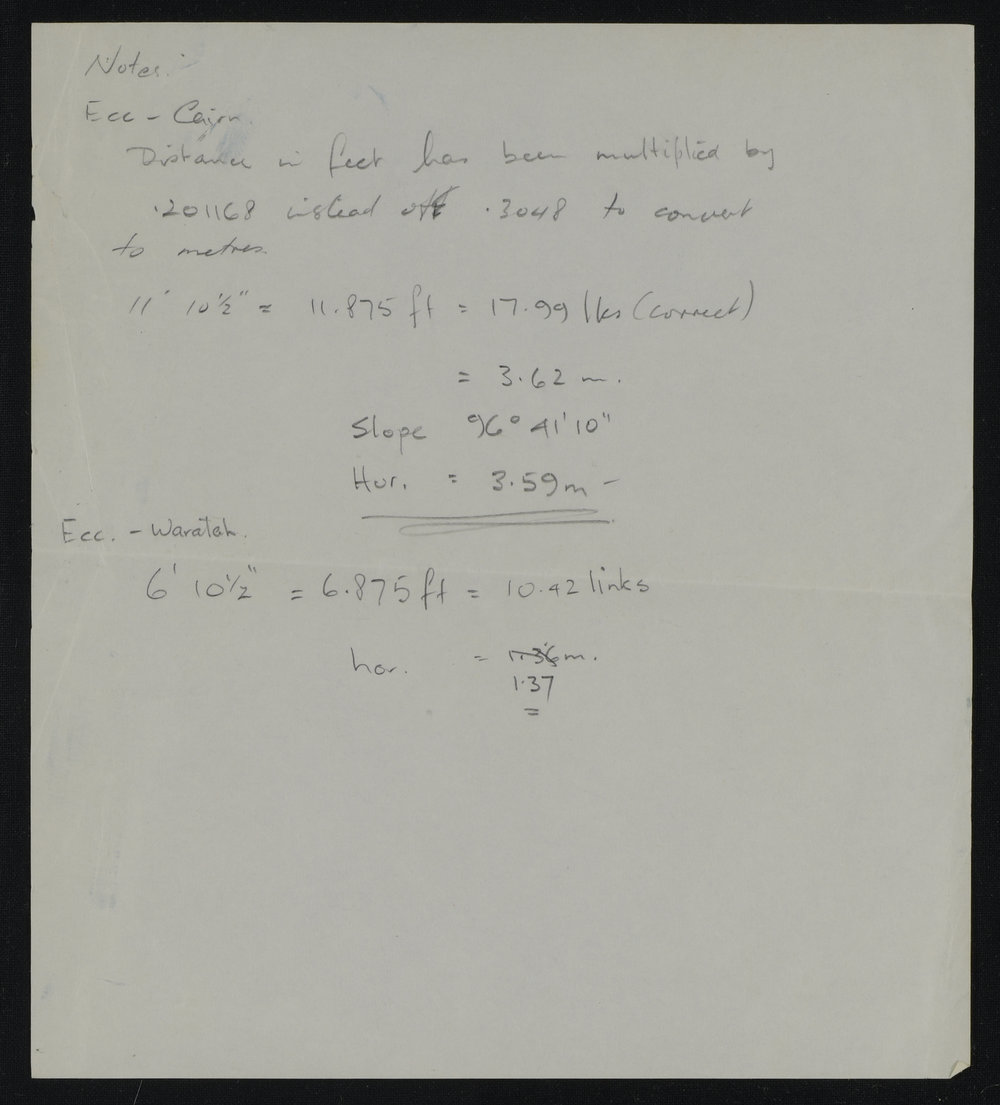 Notes.
Ecc - Cairn.
Distance in feet has been multiplied by
.201168 instead of .3048 to convert
to metres.
11' 10½" = 11.875 ft = 17.99 lks (correct)
= 3.62 m.
Slope 96° 41' 10"
Hor. = 3.59m -
Ecc. - Waratah.
6' 10½" = 6.875 ft = 10.42 links
hor. = 1.36m.
1.37